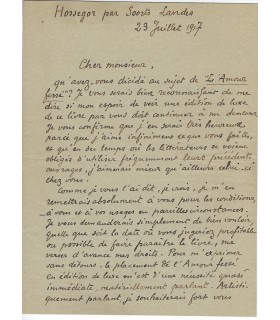 Hossegor par Soorts Landes
23 Juillet 1917
Cher monsieur,
qu'avez-vous décidé au sujet de "L'Amour
fessé"? Je vous serais bien reconnaissant de me
dire si mon espoir de voir une édition de luxe
de ce livre par vous doit continuer à me
Je vous confirme que j'en serais très heureux,
parce que j'aime infiniment ce que vous faites,
et qu'en des temps où les littérateurs se voient
obligés d'utiliser fréquemment leurs précédents
ouvrages, j'aimerais mieux qu'ailleurs celui-ci
chez vous!
Comme je vous l'ai dit, je crois, je m'en
remettrais absolument à vous pour les conditions,
à vous et à vos usages en pareilles circonstances.
Je vous demanderais simplement de bien vouloir,
quelle que soit la date où vous jugeriez profitable
ou possible de faire paraître le livre, me
verser d'avance mes droits. Pour m'exprimer
sans détours, le placement de l'Amour fessé
en édition de luxe m'est d'une nécessité quasi
immédiate, matériellement parlant. Artisti-
quement parlant, je souhaiterais fort vous